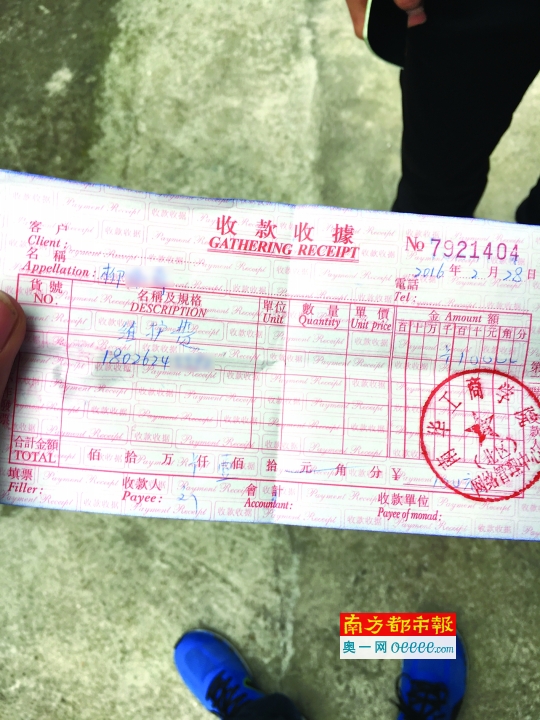 收款收據
GATHERING RECEIPT
No 7921404
2016 年 2 月 28 日
客户
Client:
名稱
Appellation: 柳
電話
Tel:
貨號 NO. 名稱及規格 DESCRIPTION 單位 Unit 數量 Quantity 單價 Unit price 金 Amount 額
百 十 万 千 百 十 元 角 分
维护费
1802624
合計金額 TOTAL 佰 拾 万 仟 佰 拾 元 角 分 ¥
填票 Filler: 收款人 Payee: 會計 Accountant: 收款單位 Payee of monad:
南华工商学院
南方都市報
奥一网 oeeee.com